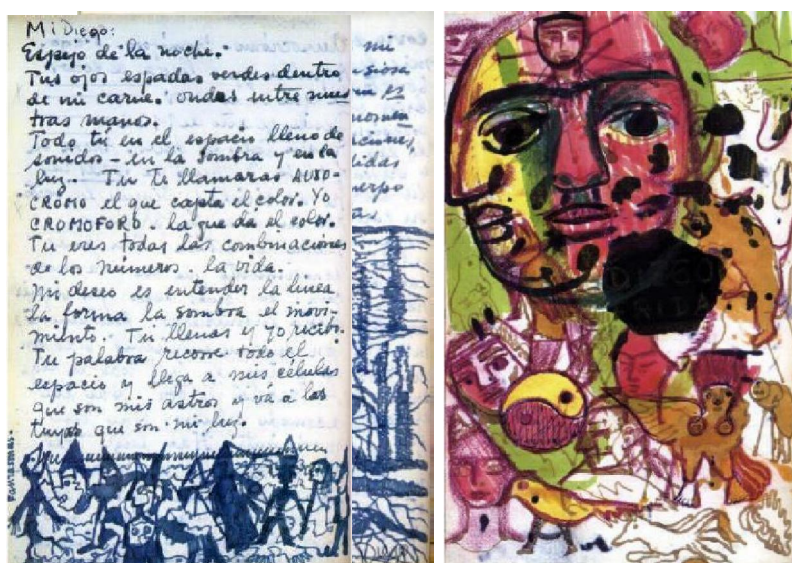 Mi Diego:
Espejo de la noche.
Tus ojos espadas verdes dentro
de mi carne. ondas entre nues
tras manos.
Todo tú en el espacio lleno de
sonidos - en la sombra y en la
luz. Tu te llamaras AUXO-
CROMO el que capta el color. Yo
CROMOFORO. la que da el color.
Tu eres todas las combinaciones
de los números. la vida.
mi deseo es entender la linea
la forma la sombra el movi-
miento. Tu llenas y yo recibo.
Tu palabra recorre todo el
espacio y llega a mis células
que son mis astros y vá a las
tuyas que son mi luz.
Fantasmas.
mi
DIEGO